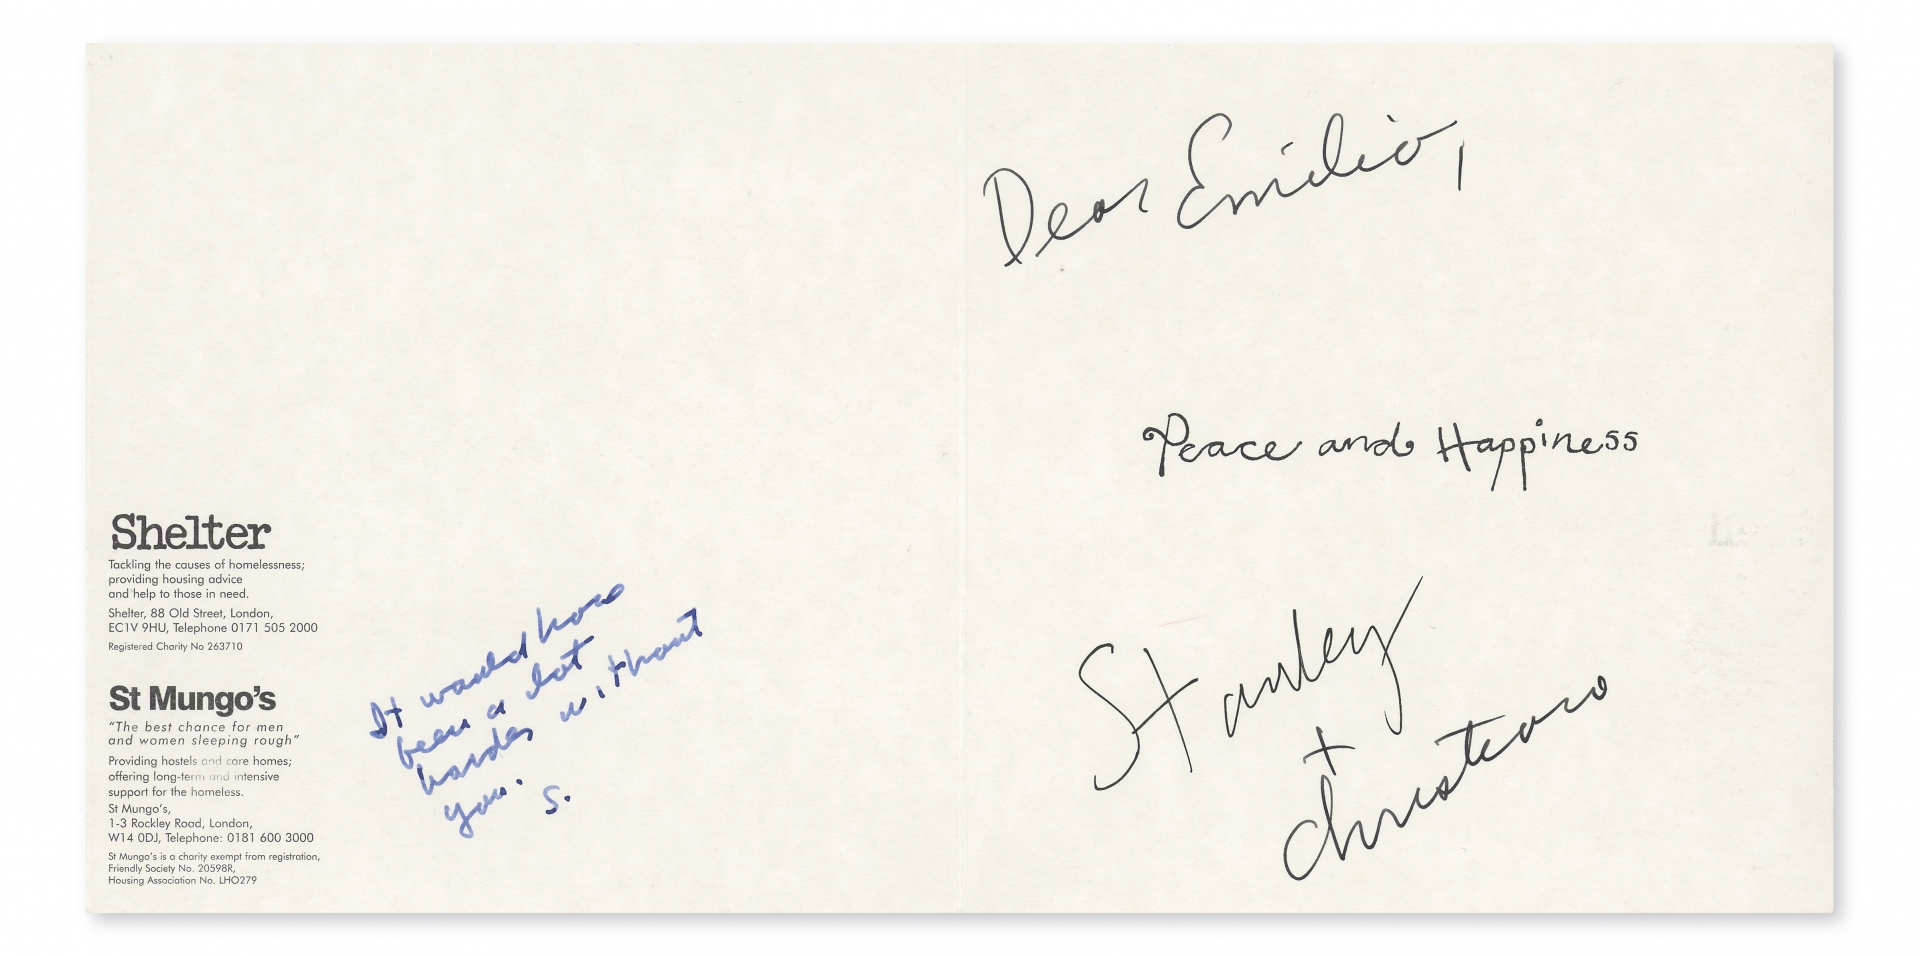 Shelter
Tackling the causes of homelessness;
providing housing advice
and help to those in need.
Shelter, 88 Old Street, London,
EC1V 9HU, Telephone 0171 505 2000
Registered Charity No 263710
St Mungo's
"The best chance for men
and women sleeping rough"
Providing hostels and care homes;
offering long-term and intensive
support for the homeless.
St Mungo's,
1-3 Rockley Road, London,
W14 0DJ, Telephone: 0181 600 3000
St Mungo's is a charity exempt from registration,
Friendly Society No. 20598R,
Housing Association No. LHO279
It would have
been a lot
harder without
you.
S.
Dear Emilio,
Peace and Happiness
Stanley
+
Christiane